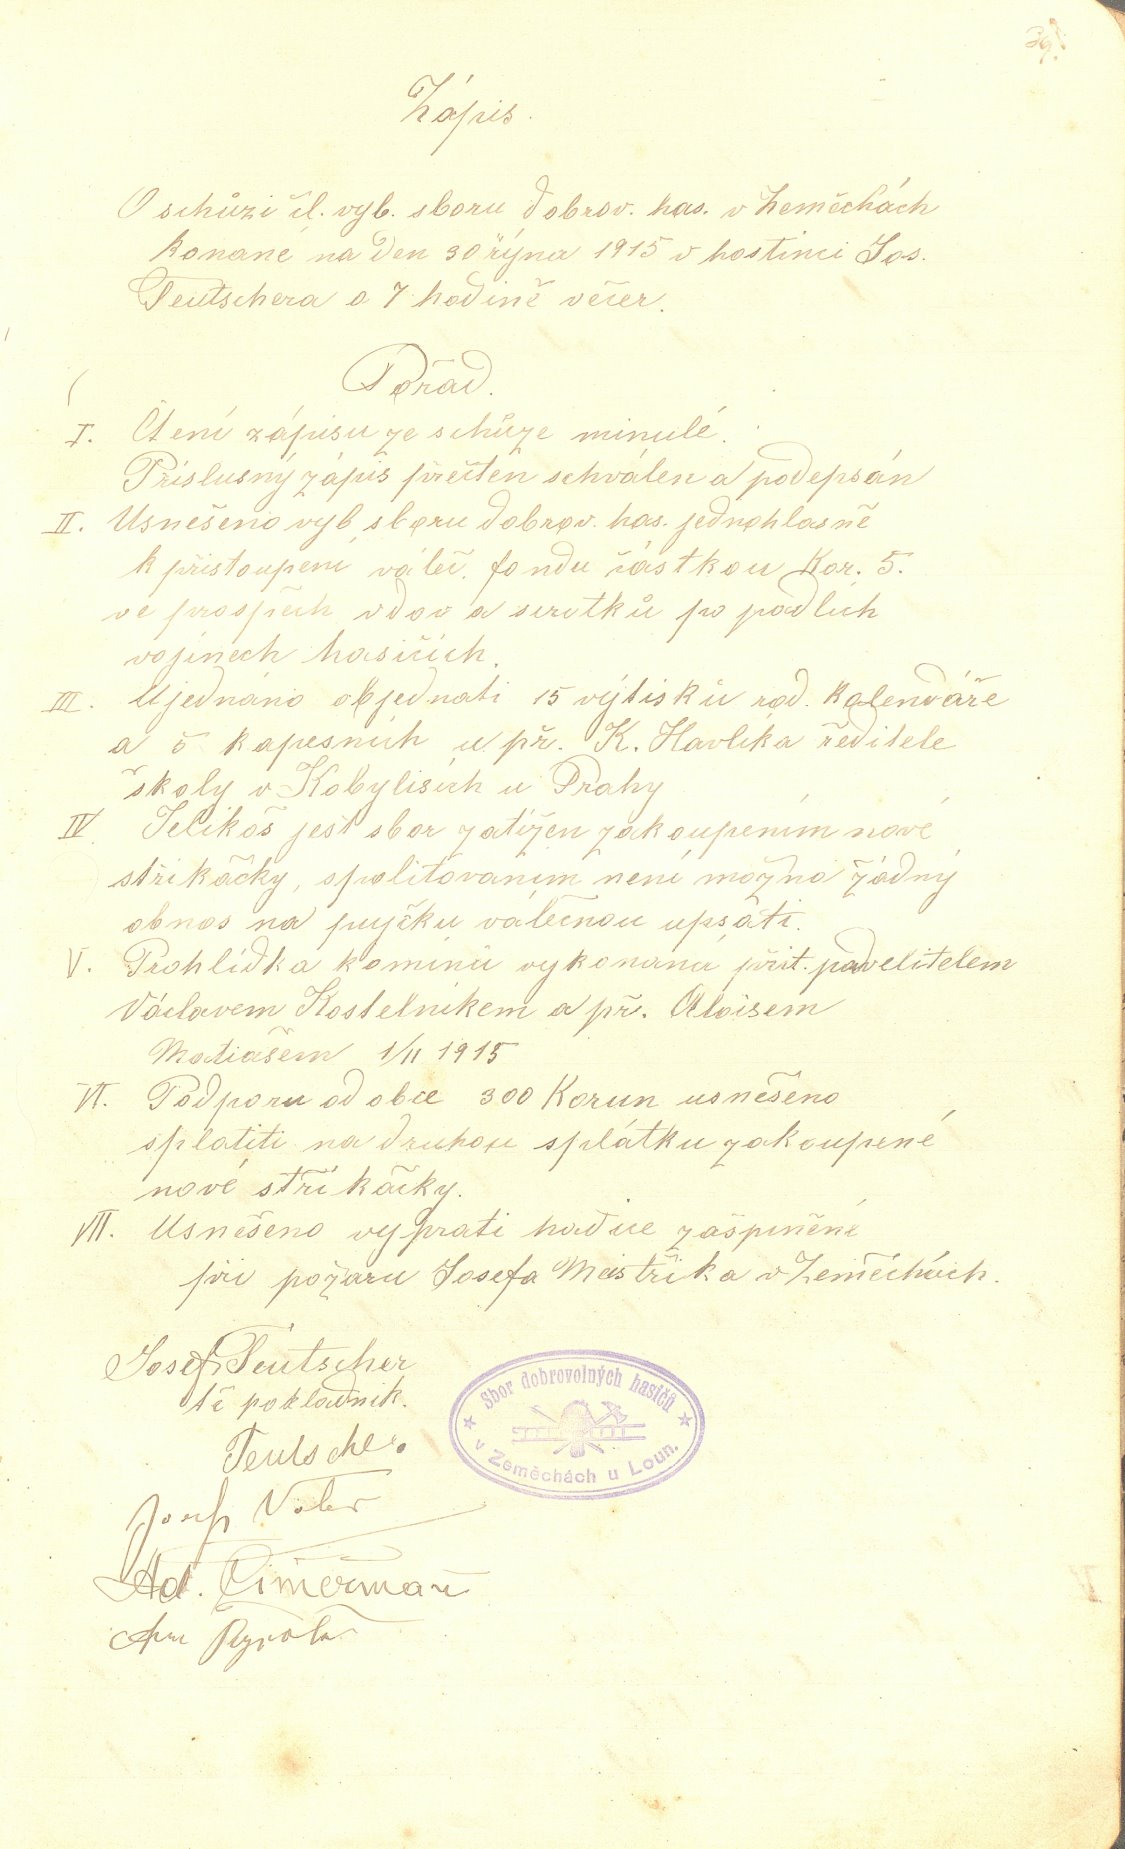 39.
Zápis.
O schůzi čl. vyb. sboru dobrov. has. v Zeměchách
konané na den 30 října 1915 v hostinci Jos.
Teutschera o 7 hodině večer.
Pořad.
I. Čtení zápisu ze schůze minulé.
Príslusný zápis přečten schválen a podepsán
II. Usnešeno vyb sboru dobrov. has. jednohlasně
k přistoupení váleč. fondu částkou Kor. 5.
ve prospěch vdov a sirotků po padlích
vojínech hasičích.
III. Ujednáno objednati 15 výtisků rad. Kalendáře
a 5 kapesních u př. K. Havlíka ředitele
školy v Kobylisích u Prahy
IV Jelikoš jest sbor zatížen zakoupením nové
stříkačky, splaliťovaním není možno žádný
obnos na pujčku válečnou upsati.
V. Prohlídka komínů vykonána přít. pavelitelem
Václavem Kostelníkem a př. Aloisem
Matiašem 1/II 1915
VI. Podporu od obce 300 Korun usnešeno
splatiti na druhou splátku zakoupené
nové stříkačky.
VII. Usnešeno vyprati hadice zašpiněné
při požaru Josefa Meistříka v Zeměchách.
Josef Teutscher
tč pokladník.
Teutscher
Josef
Ad. Cimerman
Sbor dobrovolných hasičů
v Zeměchách u Loun.